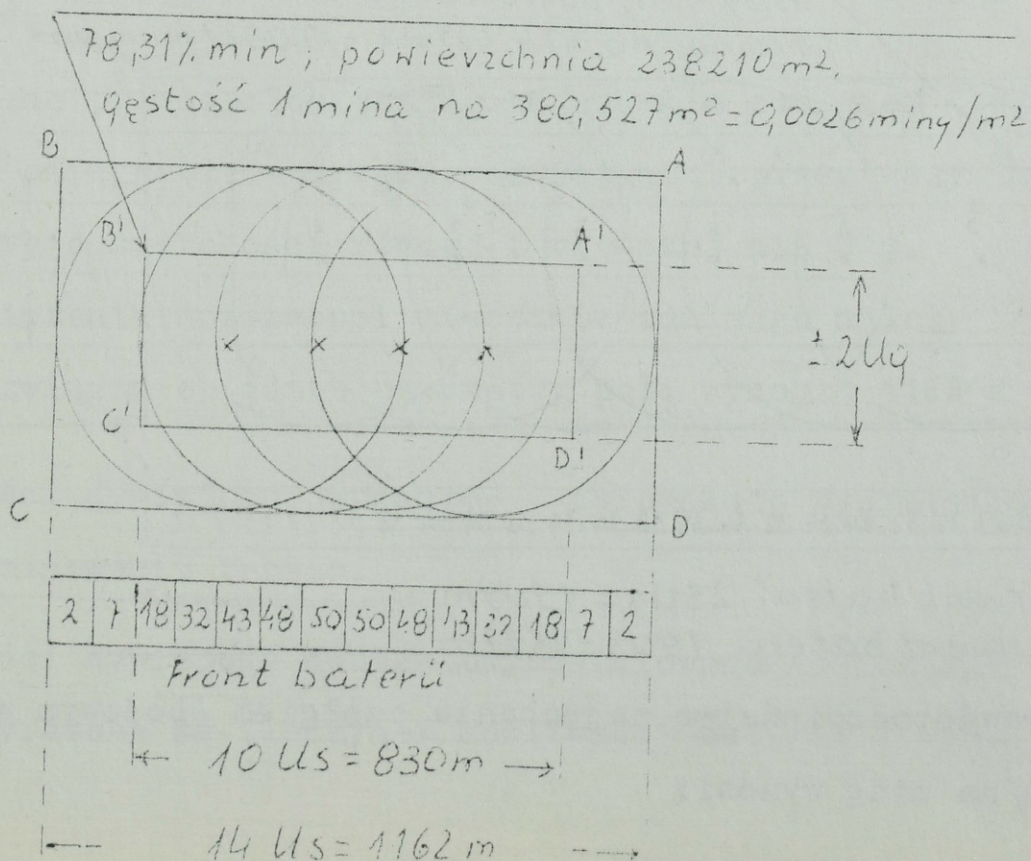 78,31% min ; powierzchnia 238210 m²,
gęstość 1 mina na 380,527 m² = 0,0026 miny/m2
B
A
B'
A'
± 2Ug
C'
D'
C
D
2 7 18 32 43 48 50 50 48 43 32 18 7 2
Front baterii
10 Us = 830 m
14 Us = 1162 m